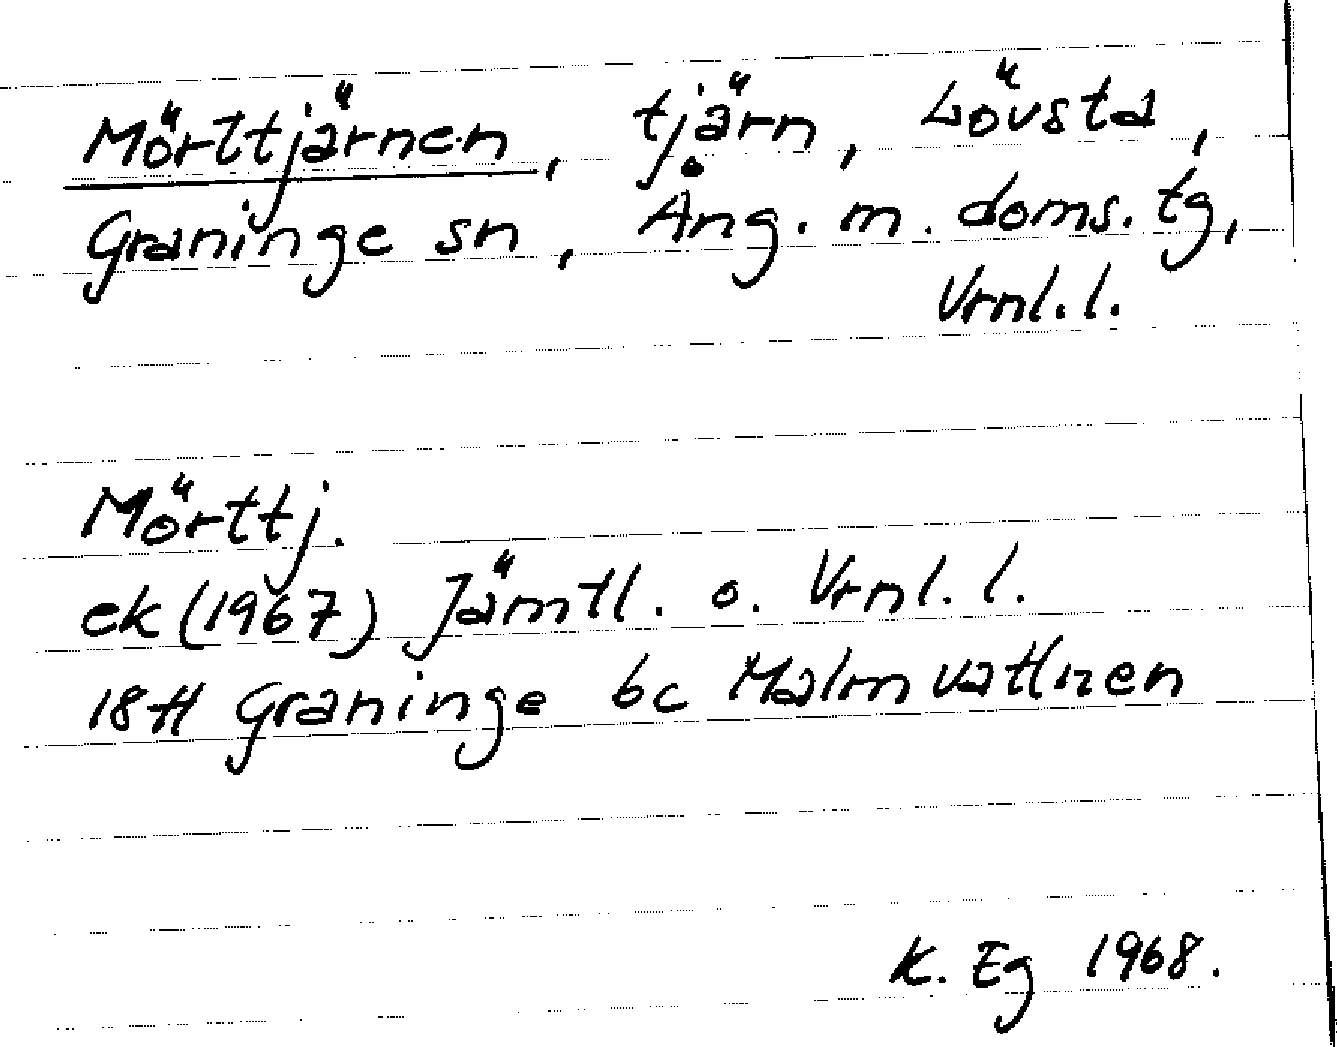 Mörttjärnen, tjärn, Lövsta,
Graninge sn, Ång. m. doms. tg,
Vrnl. l.
Mörttj.
ek (1967) Jämtl. o. Vrnl. l.
18H Graninge bc Malmvattnen
K. Eg 1968.